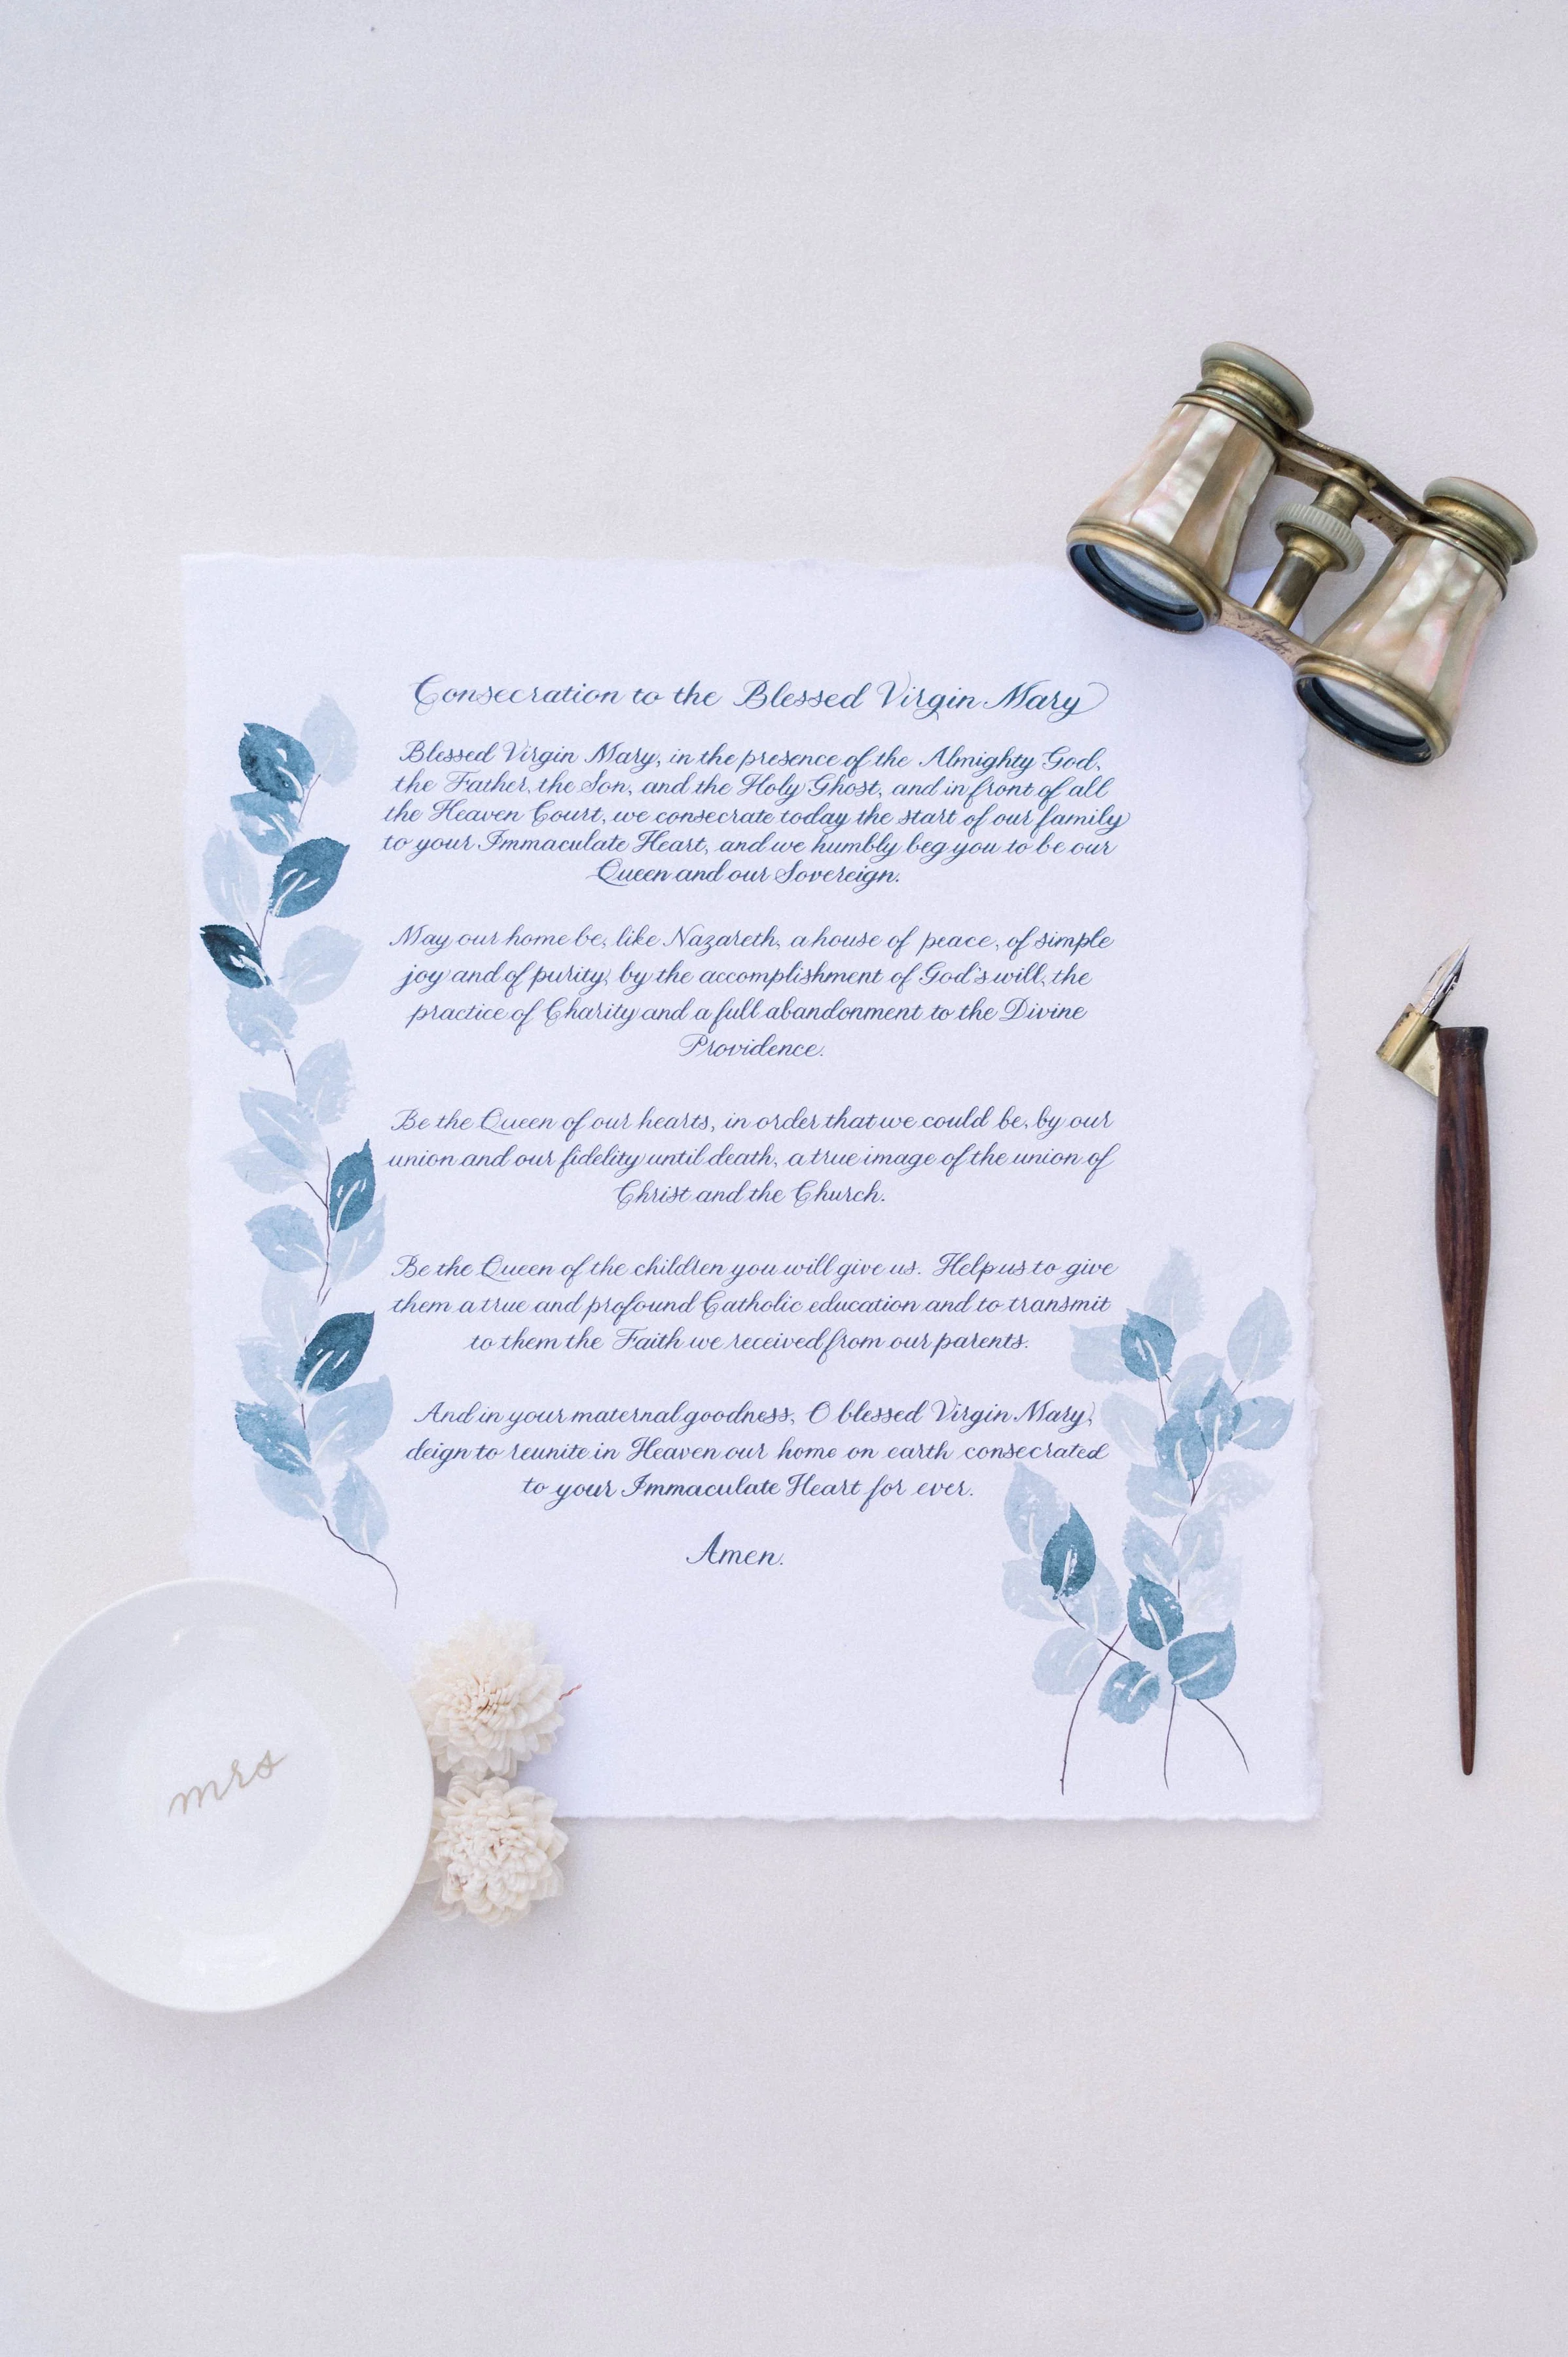 Consecration to the Blessed Virgin Mary
Blessed Virgin Mary, in the presence of the Almighty God,
the Father, the Son, and the Holy Ghost, and in front of all
the Heaven Court, we consecrate today the start of our family
to your Immaculate Heart, and we humbly beg you to be our
Queen and our Sovereign.
May our home be, like Nazareth, a house of peace, of simple
joy and of purity, by the accomplishment of God's will, the
practice of Charity and a full abandonment to the Divine
Providence.
Be the Queen of our hearts, in order that we could be, by our
union and our fidelity until death, a true image of the union of
Christ and the Church.
Be the Queen of the children you will give us. Help us to give
them a true and profound Catholic education and to transmit
to them the Faith we received from our parents.
And in your maternal goodness, O blessed Virgin Mary,
deign to reunite in Heaven our home on earth consecrated
to your Immaculate Heart for ever.
Amen.
mrs